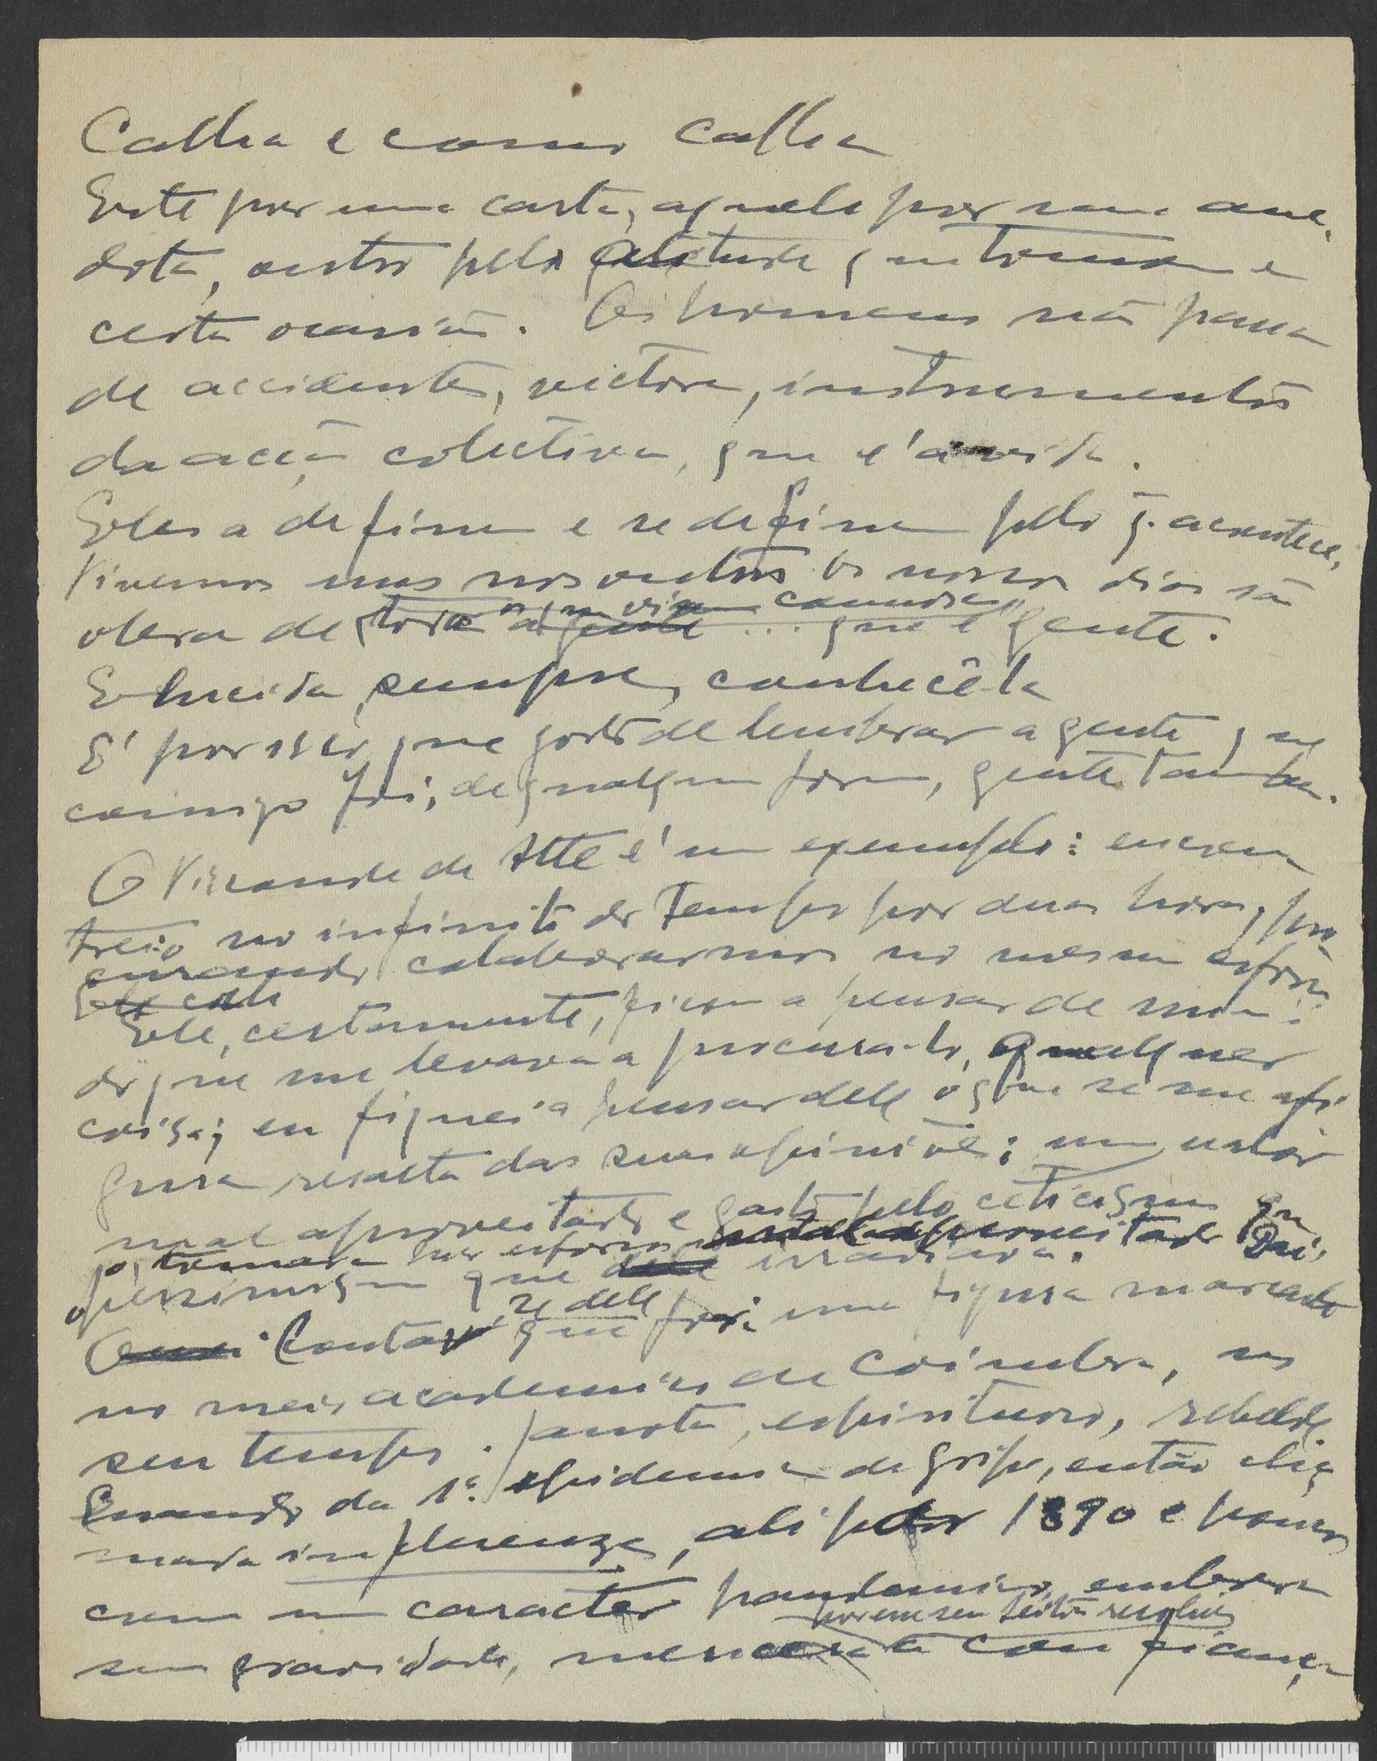 Calha e como calha
Este por uma carta, aquele por uma ane-
dota, outro pela atitude que tomou em
certa ocasião. Os homens não passam
de accidentes, victoria, instrumentos
da acção colectiva, que é a vida.
Eles a definem e se definem pelo q. acontece,
Vivemos uns nos outros os nossos dias são
obra de toda "a gente que viveu comnosco" ... que é gente.
E lucida, sempre, conhecê-la
E' por isso que gosto de lembrar a gente que
comigo foi, de qualquer forma, gente tambem.
O Visconde de Alte é um exemplo: encon-
trei-o no infinito do tempo por duas horas, pro-
curando colaborarmos no mesmo esforço.
Ele, certamente, ficou a pensar de mim,
do que me levava a procura-lo, qualquer
coisa; eu fiquei a pensar dele o que se me afi-
gura resulta das suas opiniões; um valor
mal aproveitado e gasto pelo ceticismo que
já tomara seu esforço mal aproveitado
pessimismo que dele irradiava.
Ouvi Contar-se dele que foi uma figura marcada
no meio academico de Coimbra, no
seu tempo. Janota, espirituoso, rebelde
Quando da 1ª. epidemia de gripe, então cha-
mada influenza, ali por 1890 e poucos
com um caracter pandemico, embora
sem gravidade, a confiança